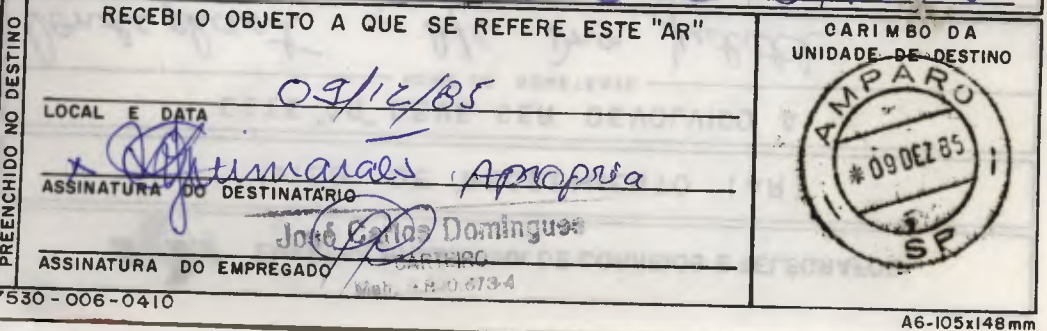 PREENCHIDO NO DESTINO
RECEBI O OBJETO A QUE SE REFERE ESTE "AR"
09/12/85
LOCAL E DATA
Apropria
ASSINATURA DO DESTINATÁRIO
José Carlos Domingues
CARTEIRO
ASSINATURA DO EMPREGADO
7530-006-0410
CARIMBO DA
UNIDADE DE DESTINO
AMPARO
* 09 DEZ 85
SP
A6-105x148mm